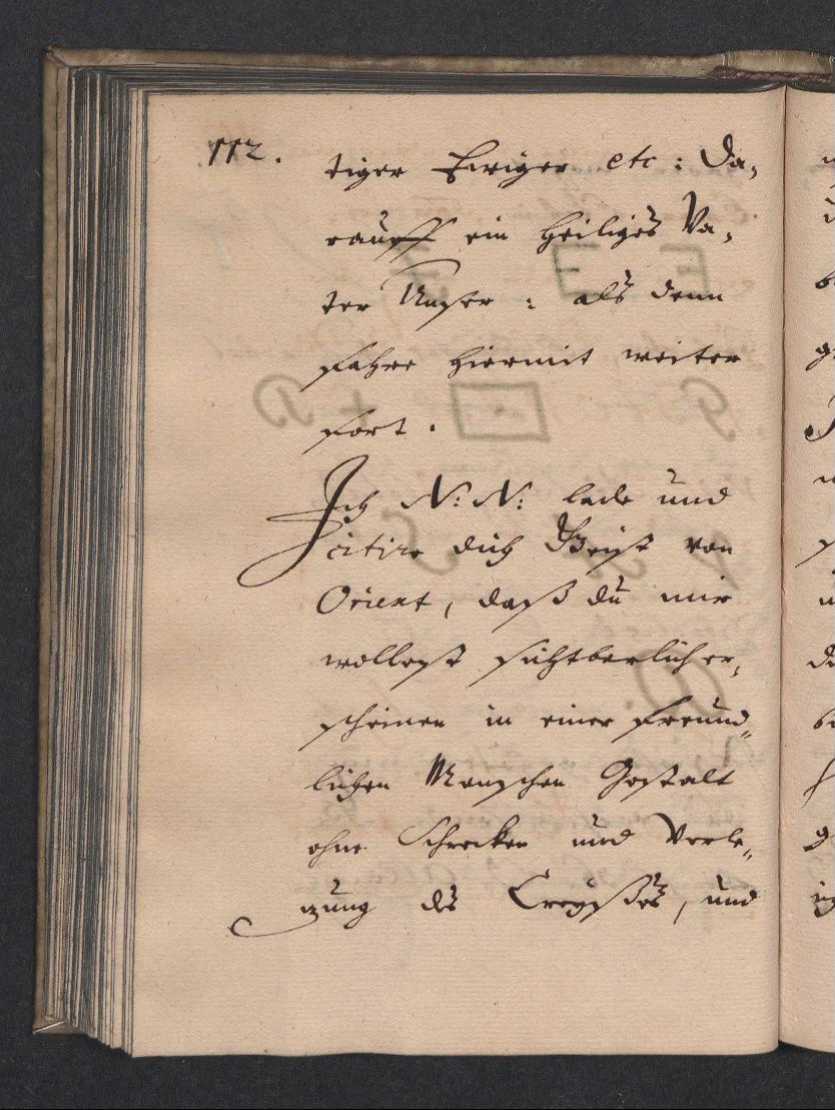 112.
tiger Ewiger etc: Da,
rauff ein Heiliges Va,
ter Unser: als denn
fahre hiermit weiter
fort.
Ich N: N: lade und
citire dich Geist von
Orient, daß du mir
wollest sichtbarlich er,
scheinen in einer freund,,
lichen Menschen Gestalt
ohne Schrecken und Verle,,
zung des Creyßes, und